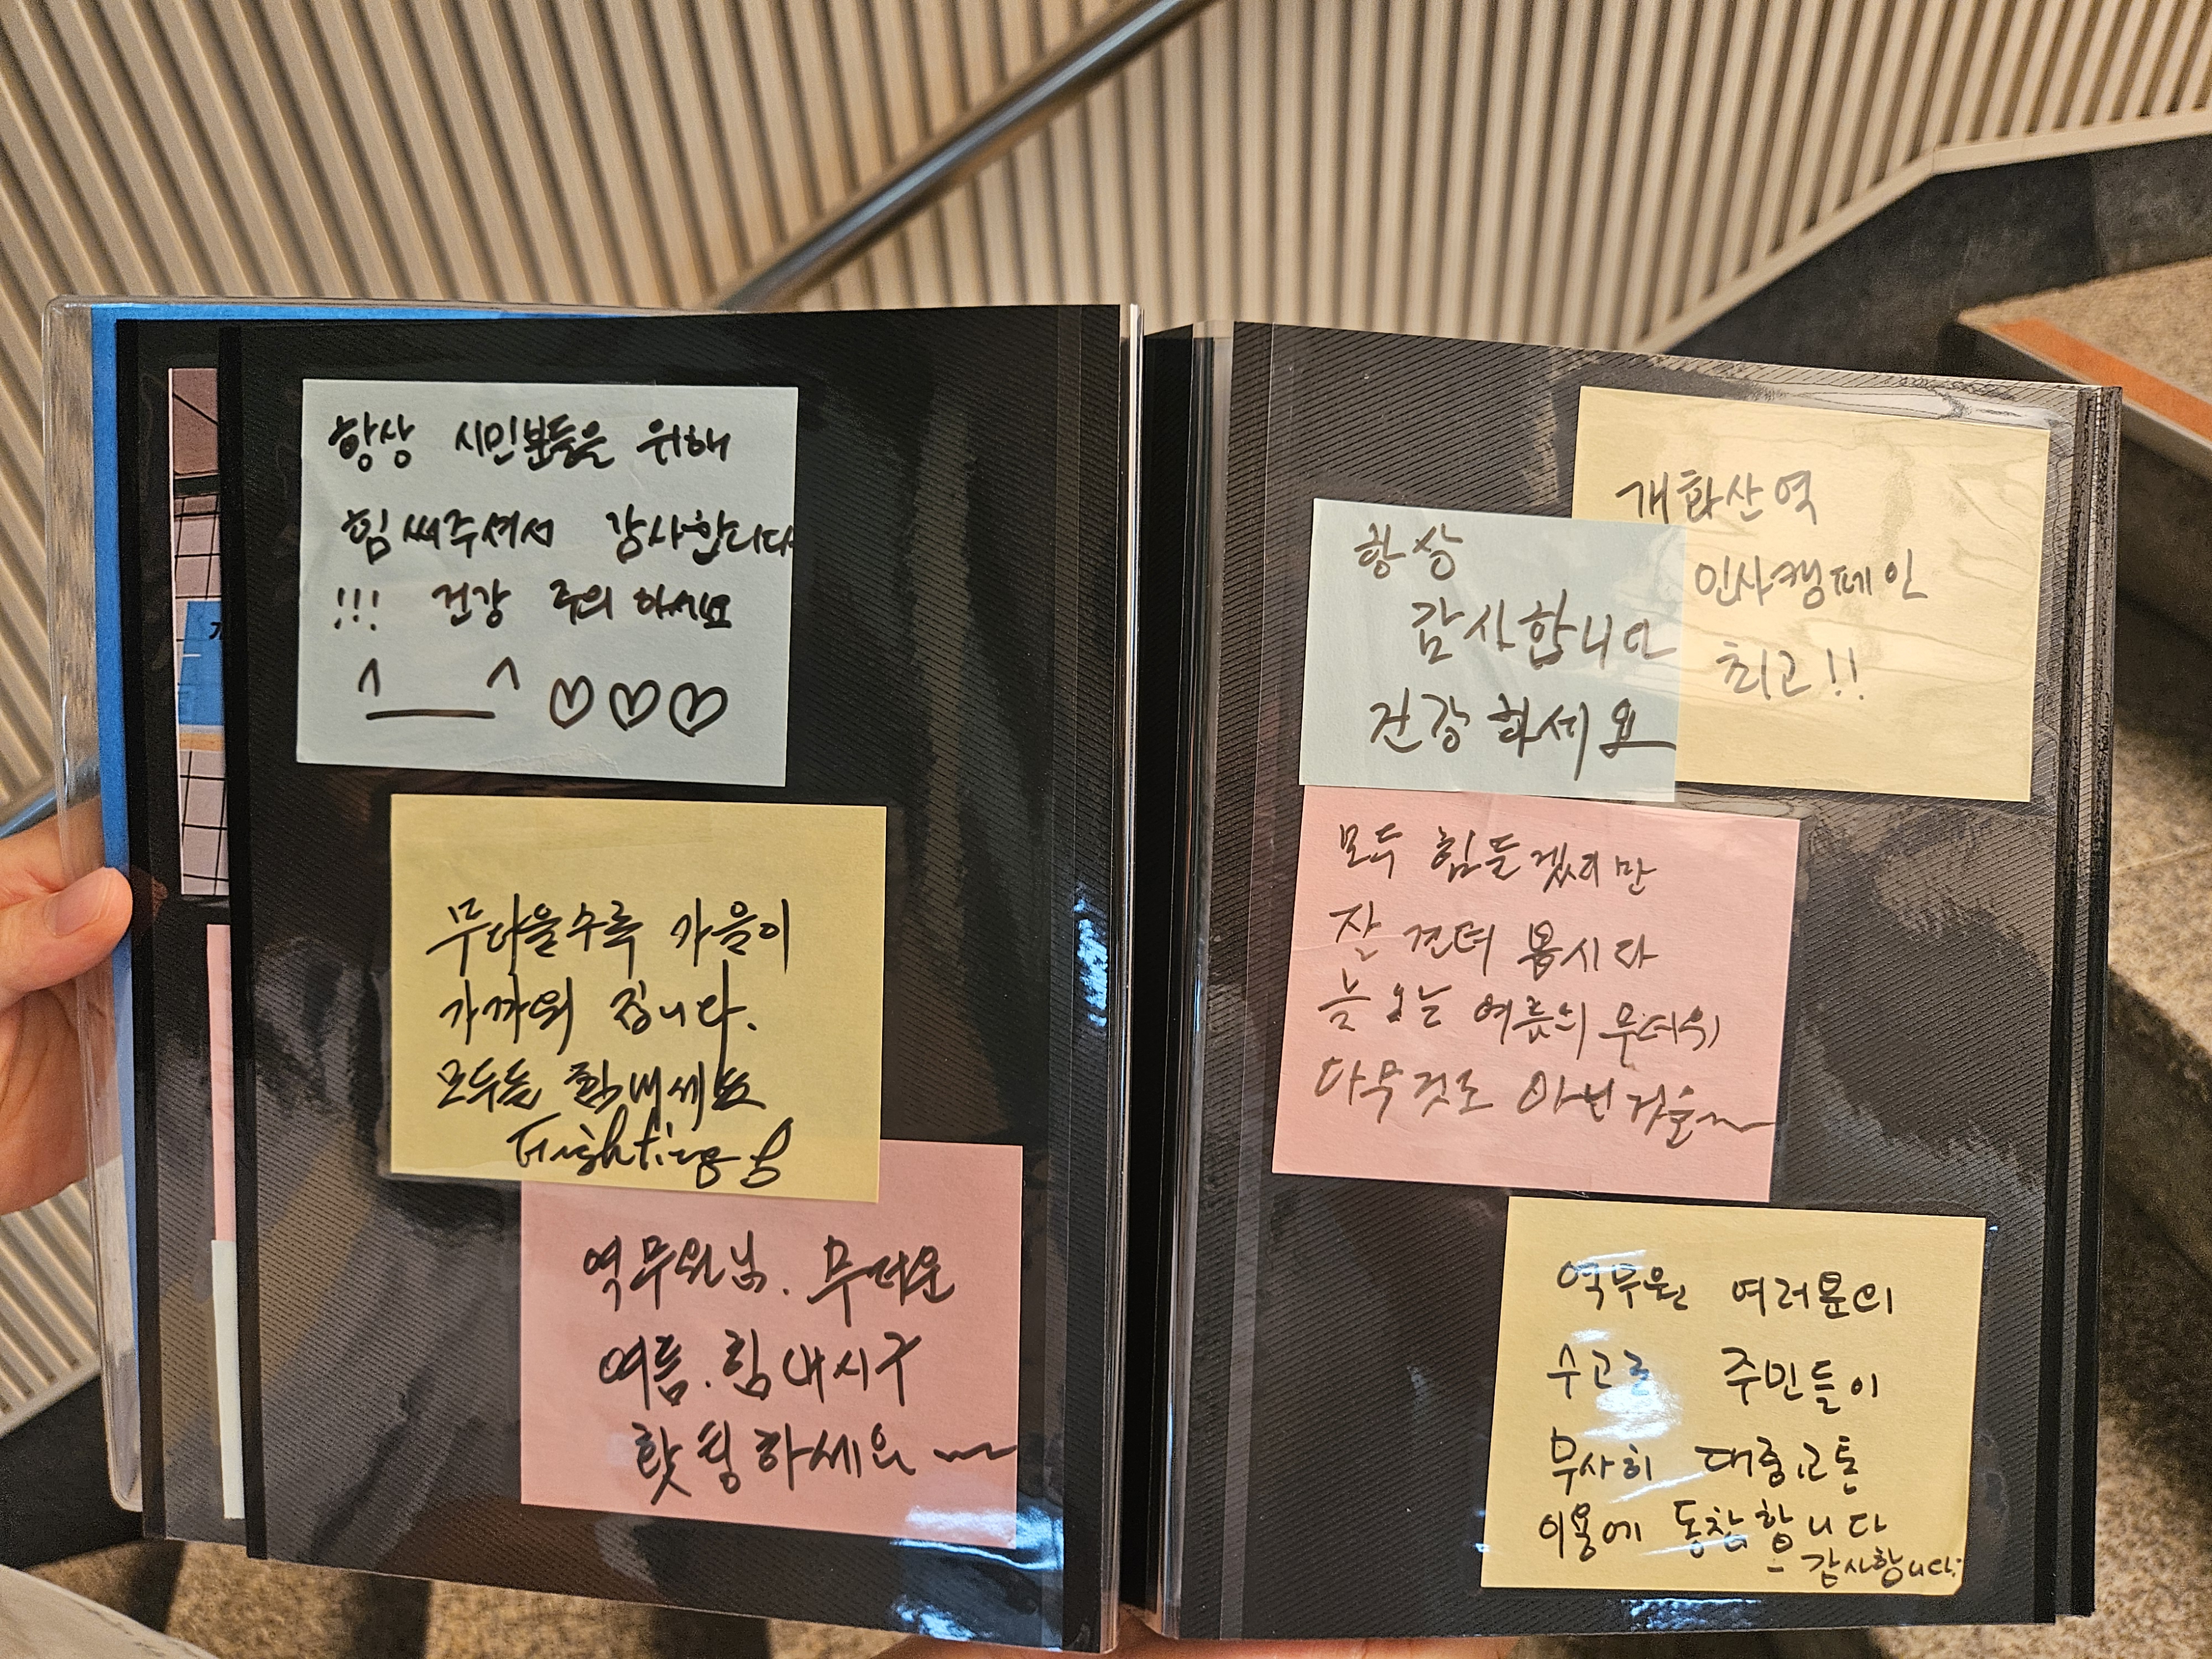 항상 시민분들을 위해
힘써주셔서 감사합니다
!!! 건강 주의 하세요
^__^ ♡♡♡
무더울수록 가을이
가까워 집니다.
모두들 힘내세요
Fighting
역무원님. 무더운
여름. 힘내시구
홧팅하세요~
개화산역
인사캠페인
최고!!
항상
감사합니다
건강하세요
모두 힘들겠지만
잘 견뎌 봅시다
늘 오는 여름의 무더위
아무것도 아닌 것을~
역무원 여러분의
수고로 주민들이
무사히 대중교통
이용에 동참합니다
- 감사합니다.